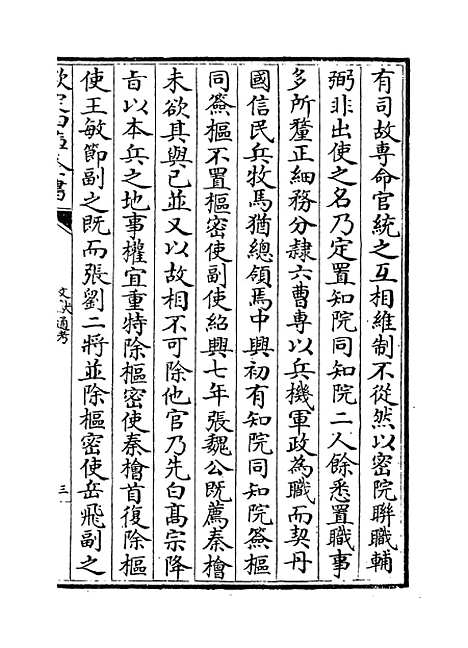 有司故專命官統之互相維制不從然以密院聯職輔
弼非出使之名乃定置知院同知院二人餘悉置職事
多所釐正細務分隸六曹專以兵機軍政為職而契丹
國信民兵牧馬猶總領焉中興初有知院同知院簽樞
同簽樞不置樞密使副使紹興七年張魏公既薦秦檜
未欲其與已並又以故相不可除他官乃先白髙宗降
㫖以本兵之地事權宜重特除樞密使秦檜首復除樞
使王敏節副之既而張劉二將並除樞密使岳飛副之
欽定四庫全書
文獻通考
三